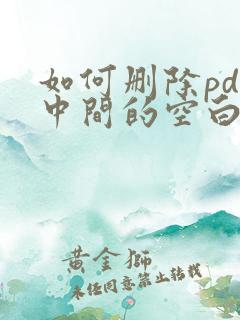 如何删除pd
中间的空白
黄金狮
未经同意禁止转载